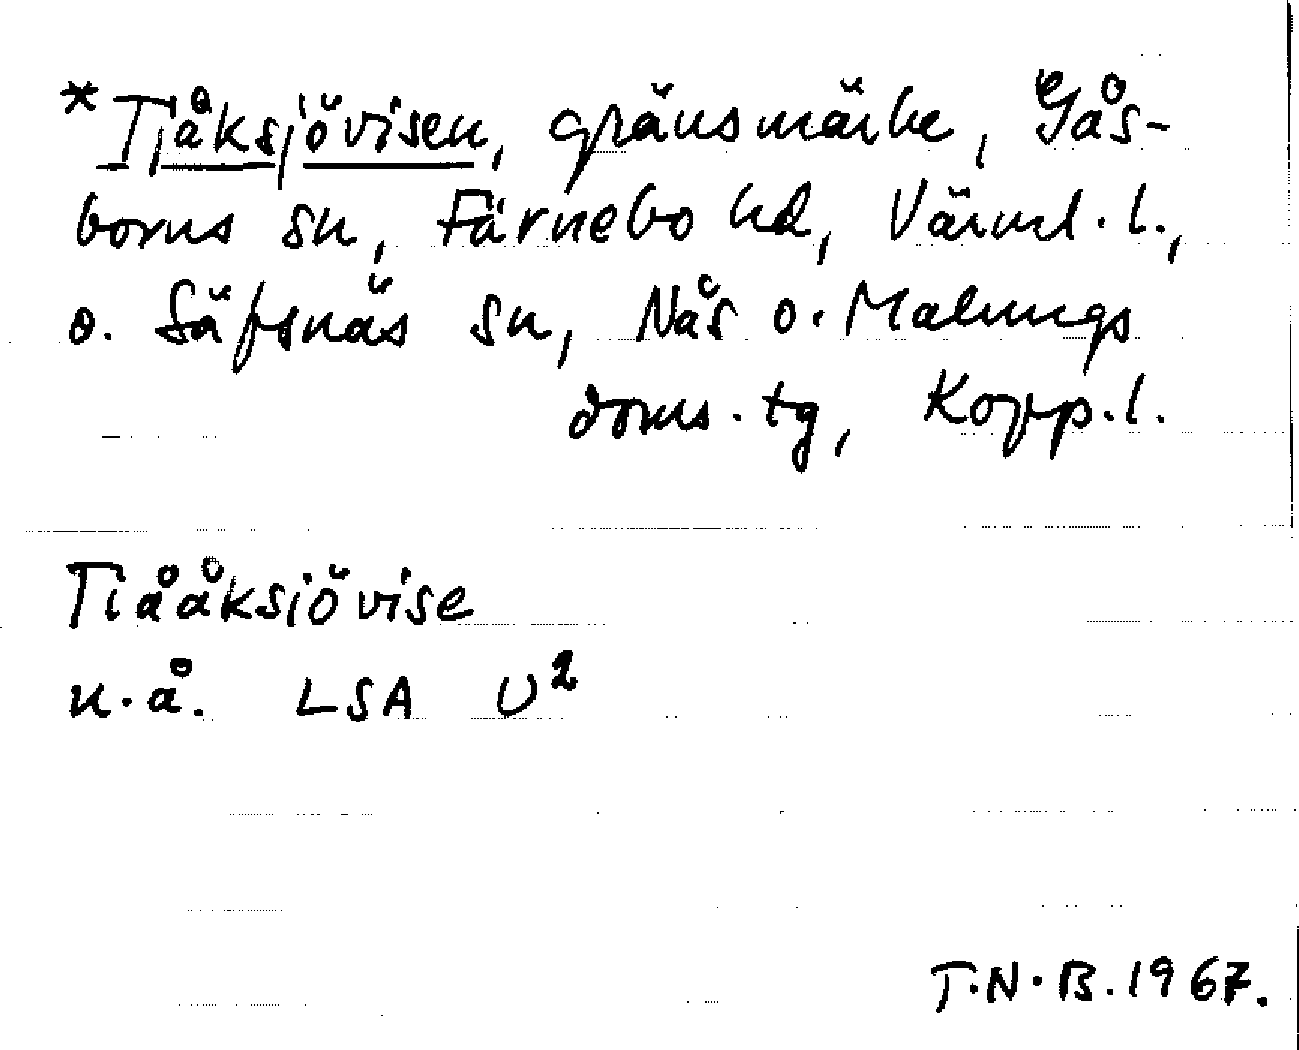 *Tjåksjövisen, gränsmärke, Gås-
borns sn, Färnebo hd, Värml. l.,
o. Säfsnäs sn, Nås o. Malungs
doms. tg, Kopp. l.
Tiååksiövise
u. å. LSA U²
T.N.B. 1967.